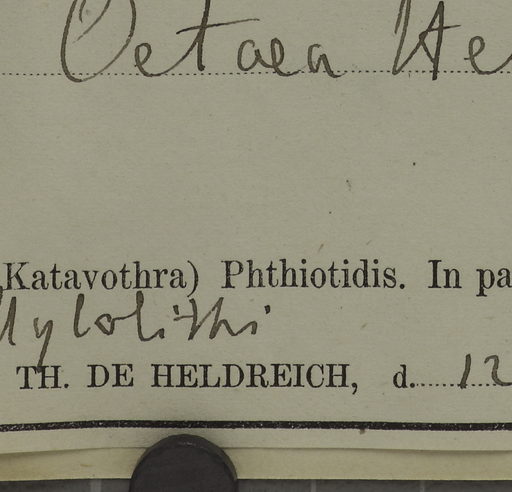 Oetaea He
Katavothra) Phthiotidis. In pa
TH. DE HELDREICH, d. 12